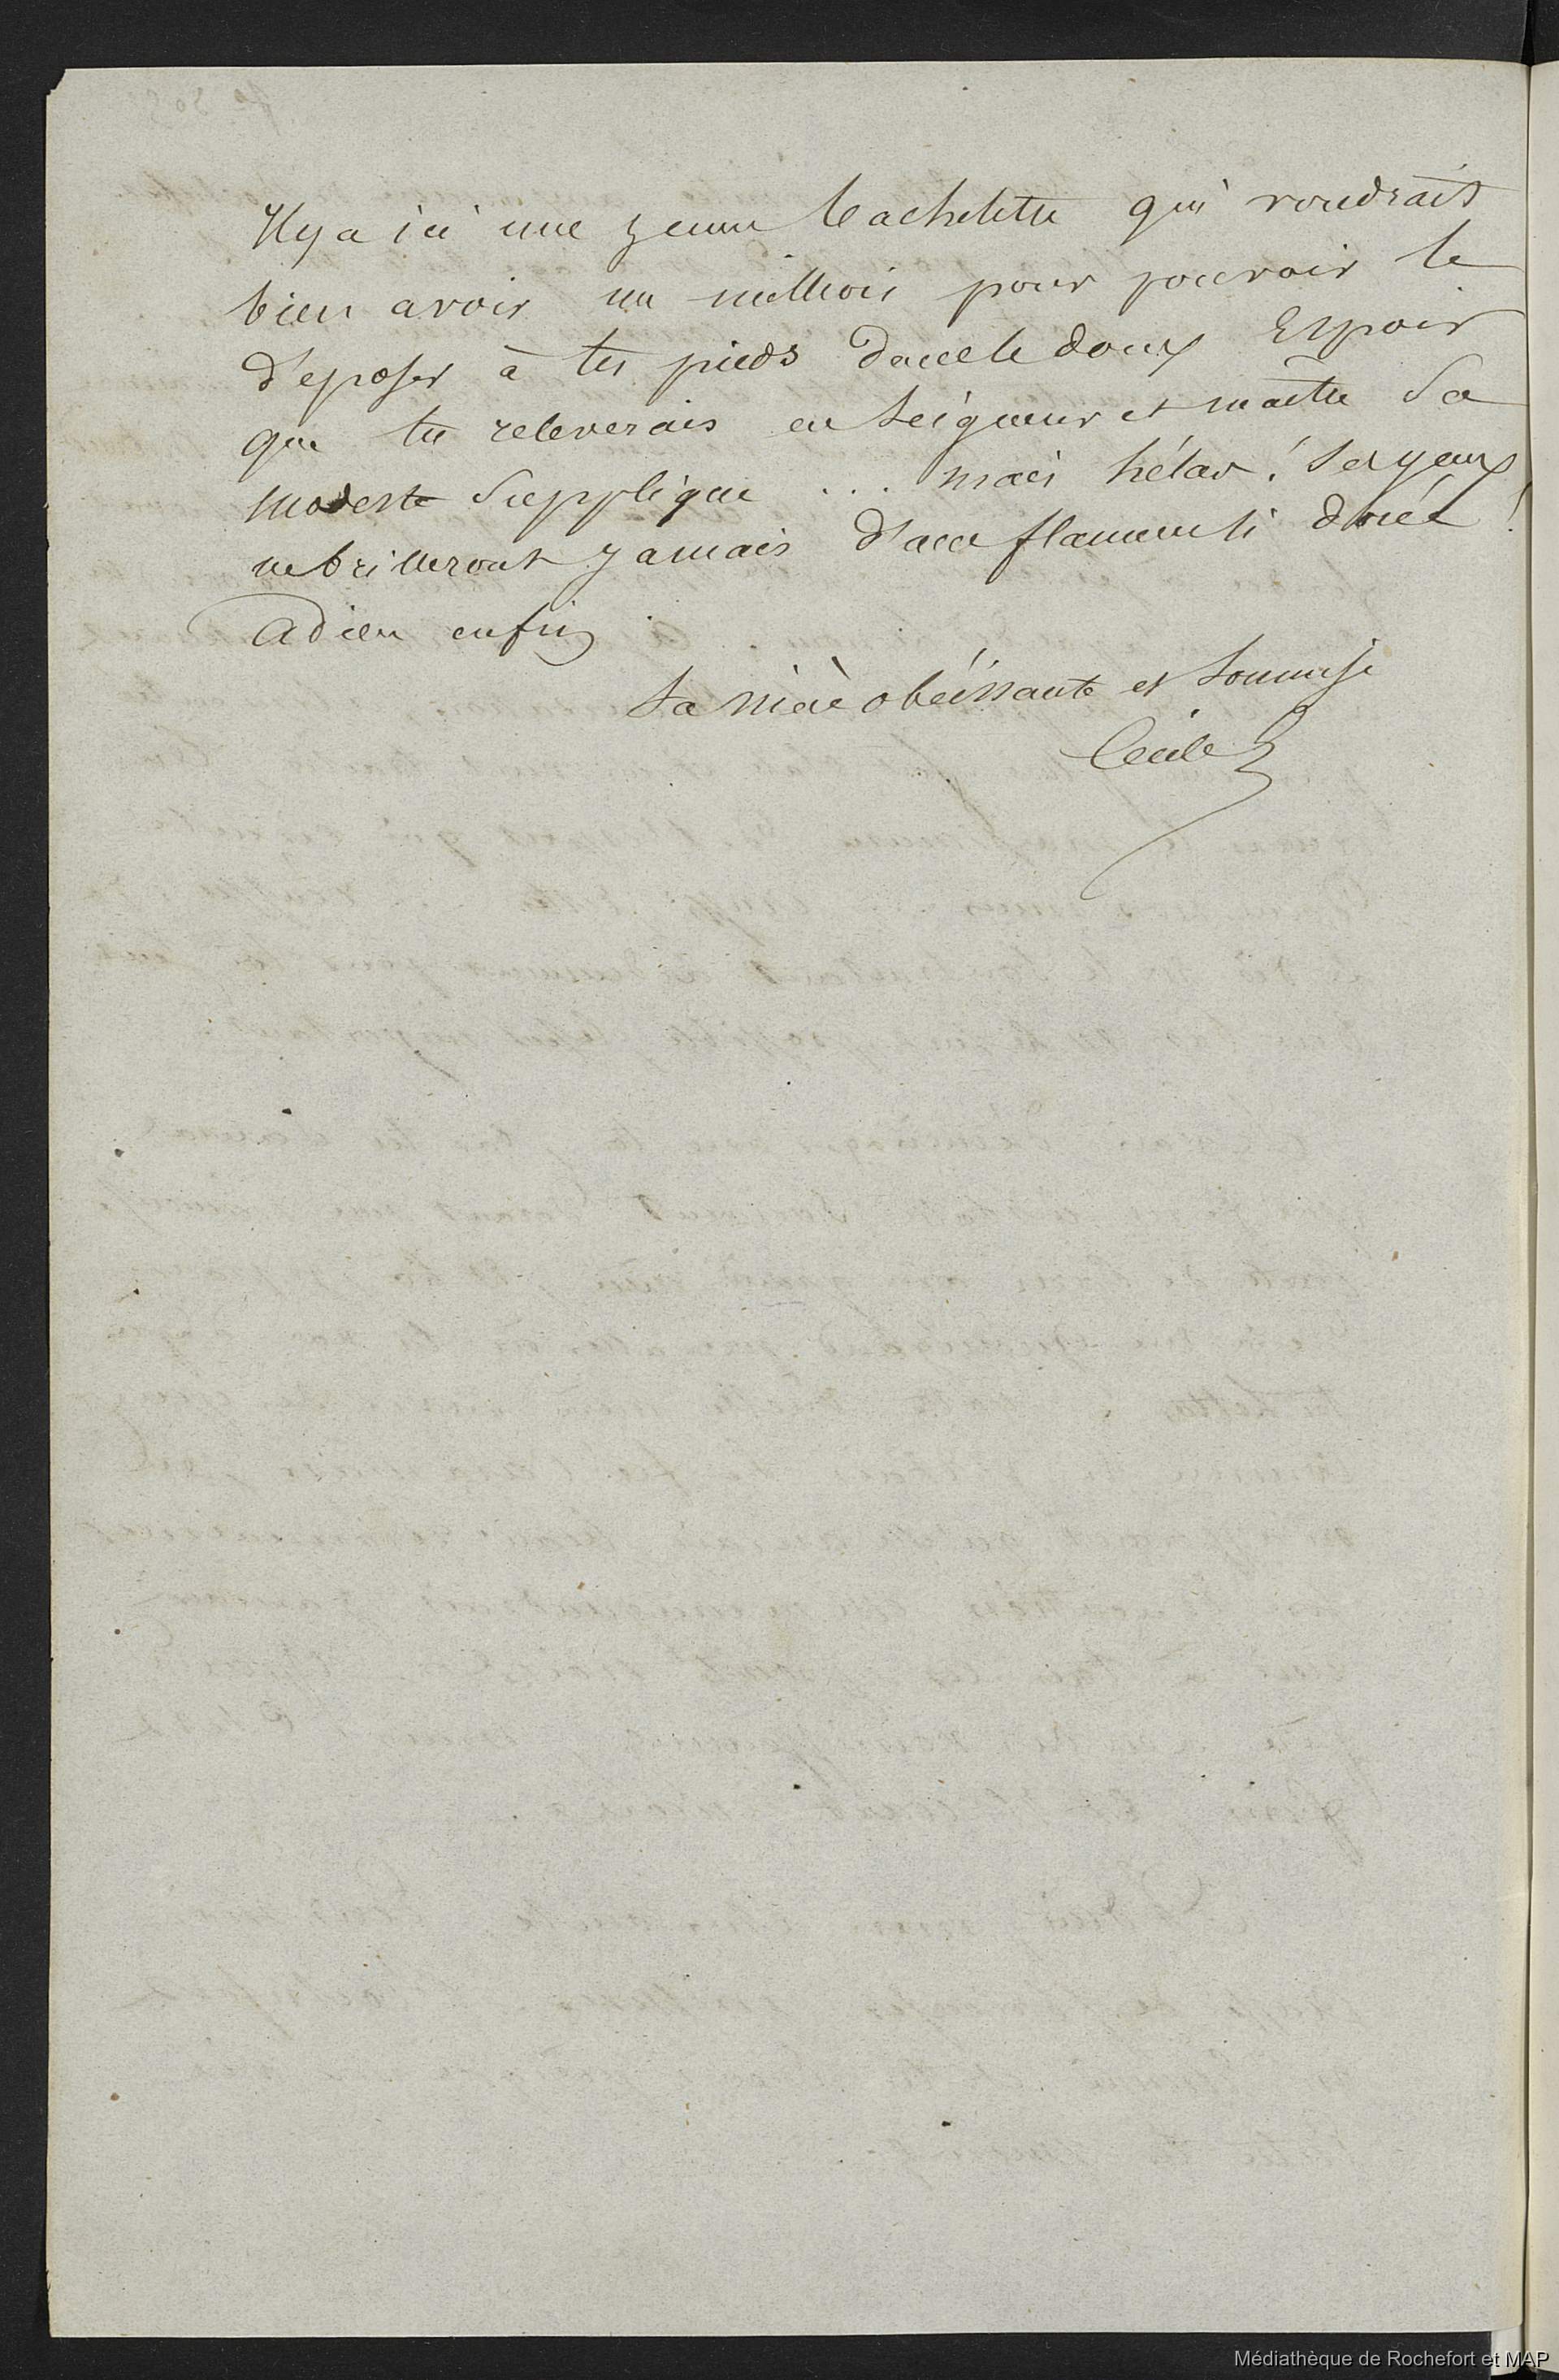 Il y a ici une jeune bachelette qui voudrait
bien avoir un million pour pouvoir le
déposer à tes pieds dans le doux Espoir
que tu releverais en Seigneur et maître Sa
modeste Supplique ... mais hélas ! Ses yeux
ne brilleront jamais d'une flamme si dorée !
Adieu enfin
Ta nièce obéissante et Soumise
Cécile
Médiathèque de Rochefort et MAP